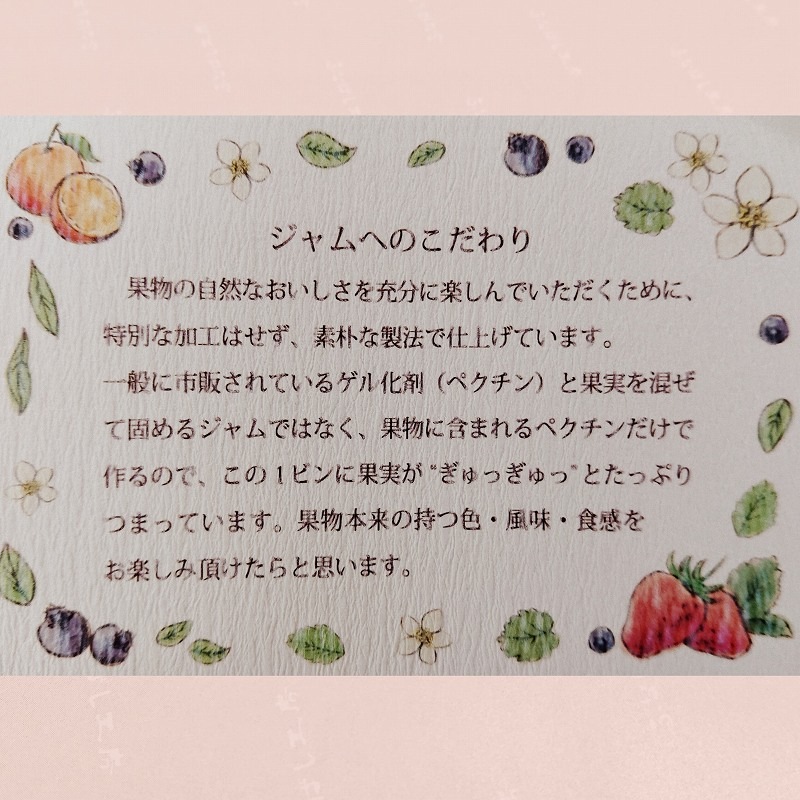 ジャムへのこだわり
果物の自然なおいしさを充分に楽しんでいただくために、
特別な加工はせず、素朴な製法で仕上げています。
一般に市販されているゲル化剤（ペクチン）と果実を混ぜ
て固めるジャムではなく、果物に含まれるペクチンだけで
作るので、この１ビンに果実が“ぎゅっぎゅっ”とたっぷり
つまっています。果物本来の持つ色・風味・食感を
お楽しみ頂けたらと思います。